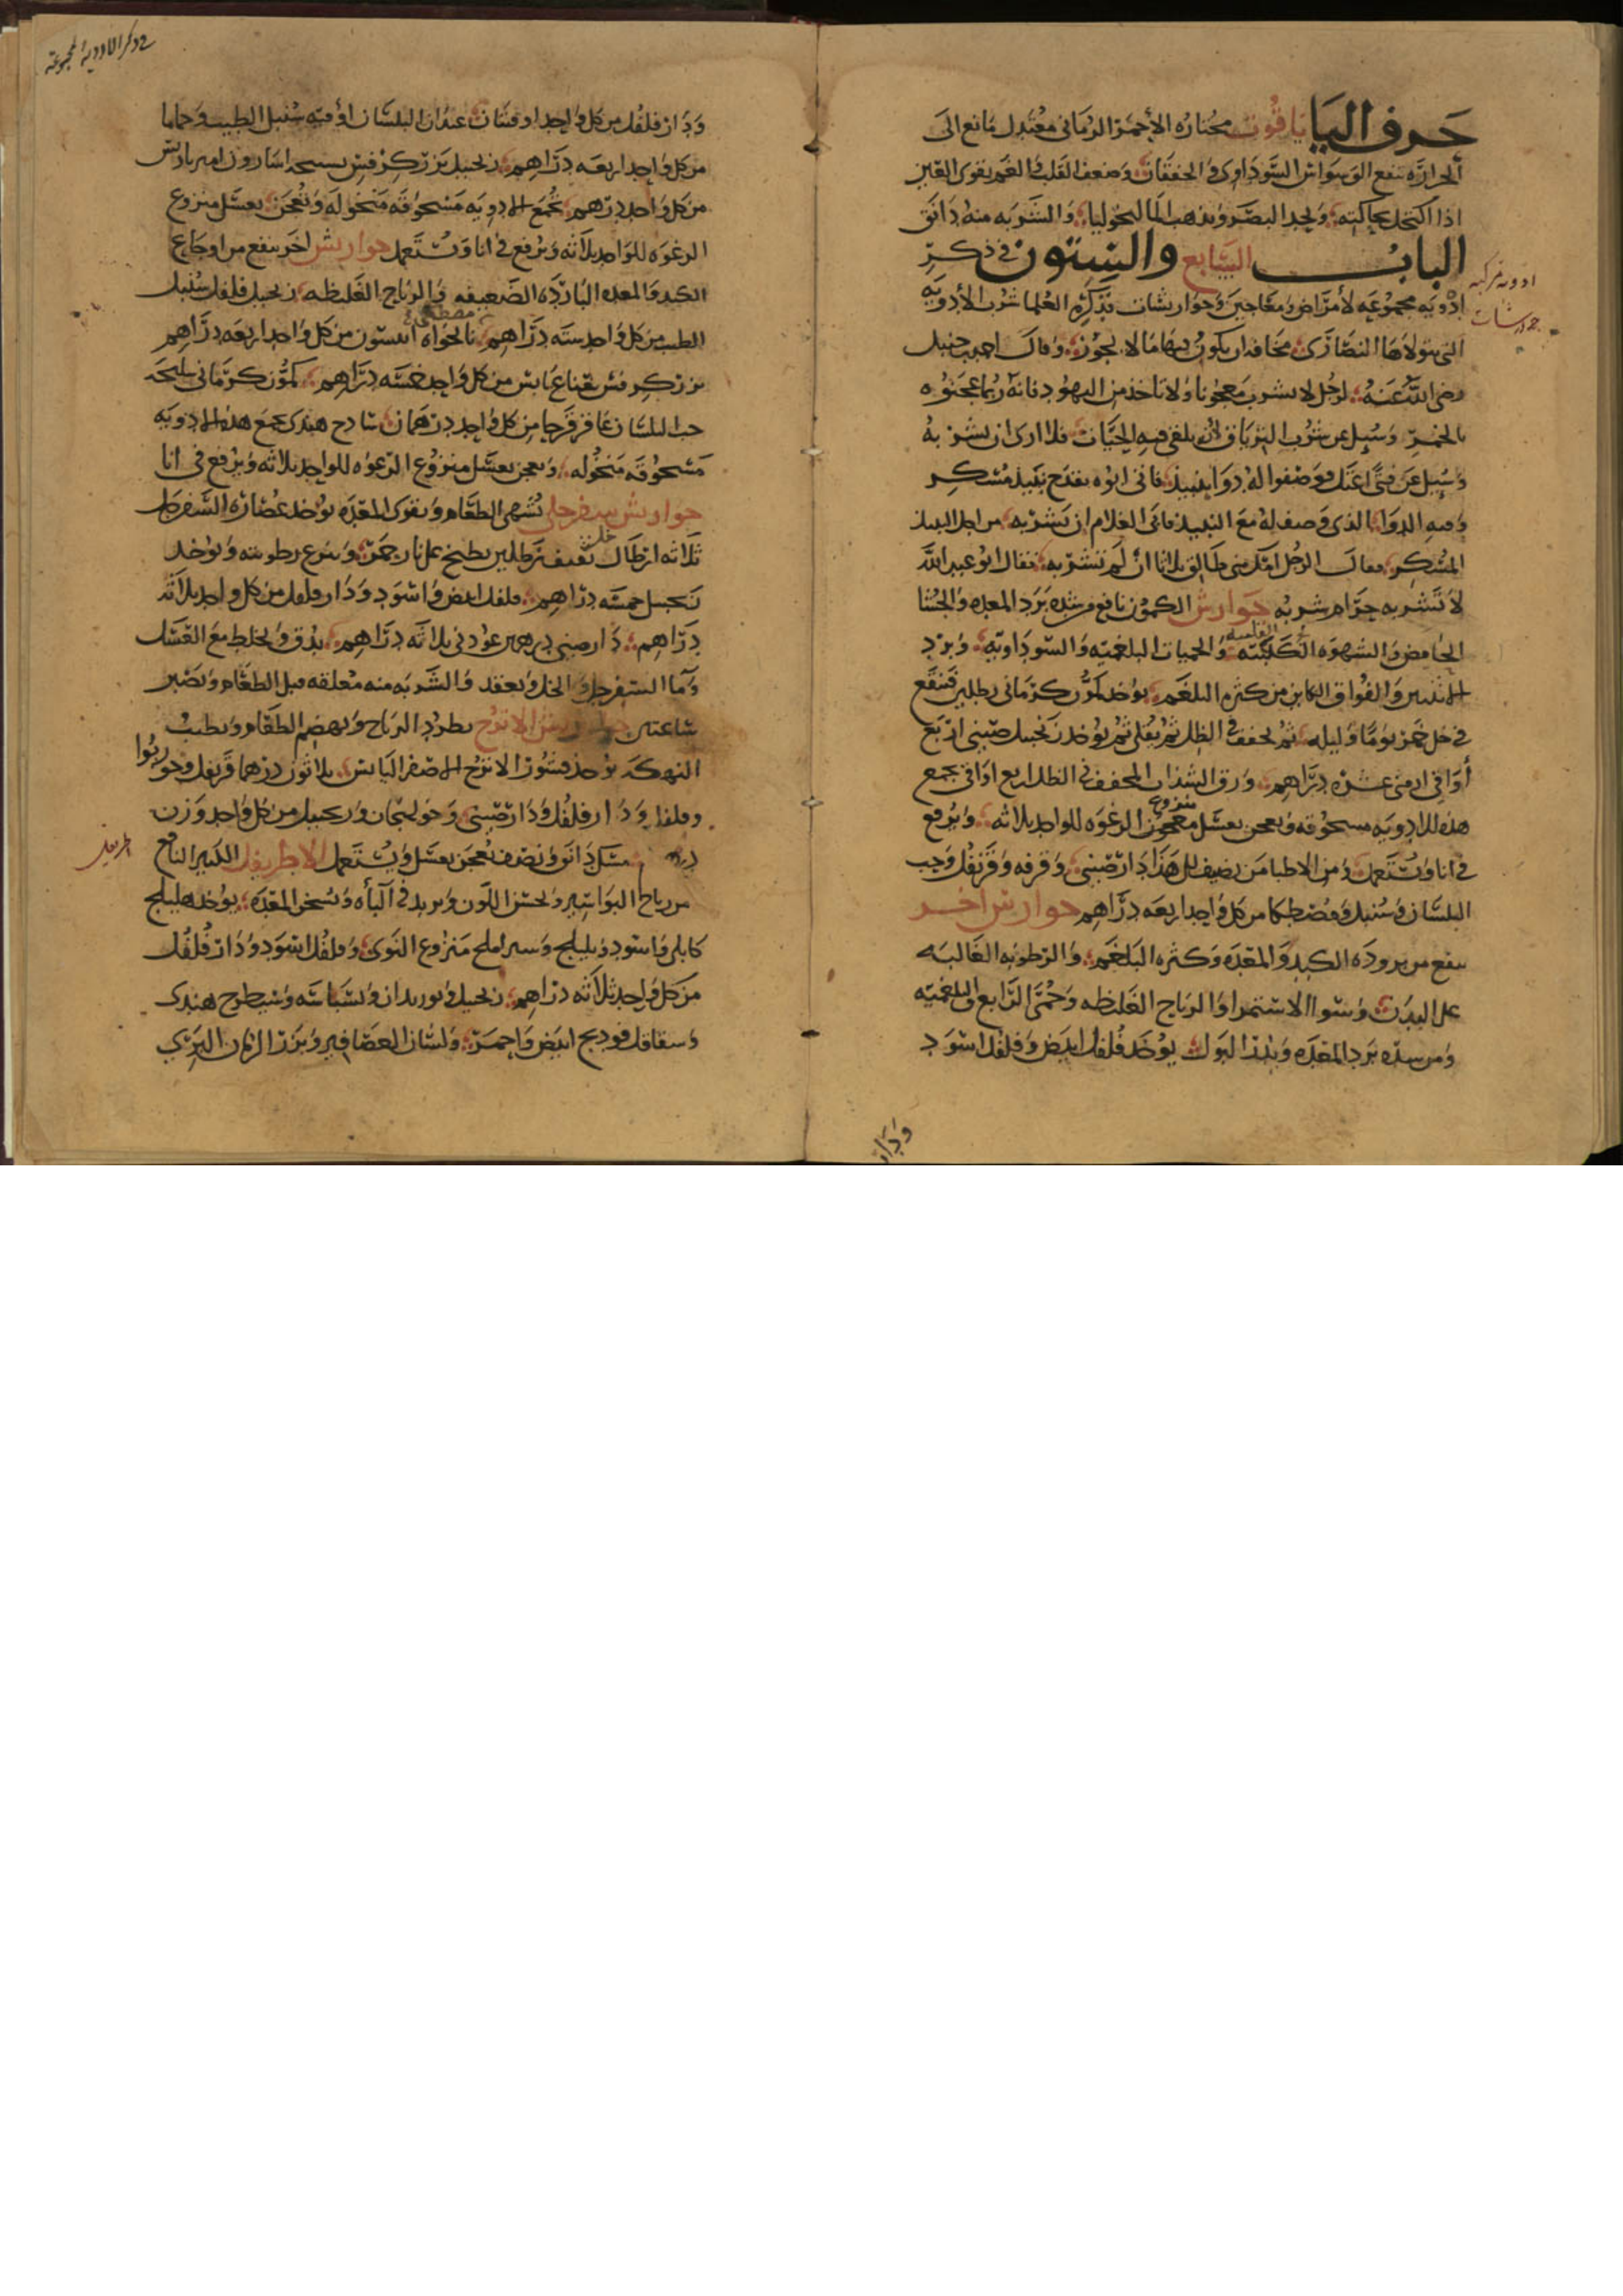 حرف اليا ياقوت مختاره الأحمر الرماني معتدل مانع الى
الحرارة ينفع الوسواس السوداوى والخفقان وضعف القلب والغم يقوى العين
اذا اكتحل بحاكته ويحد البصر ويذهب المالنخوليا والشربه منه دانق
الباب السابع والستون في ذكر
ادويه مجموعه لأمراض ومعاجين وجوارشات تذكره العلما شرب الأدويه
ادويه مركبه
جوارشات
التى يتولاها النصارى مخافه ان يكون فيها ما لا يجوز وقال احمد بن حنبل
رضى الله عنه لرجل لا تشرب معجونا ولا تاخذ من اليهود فانه ربما عجنوه
بالخمر وسيل عن شرب الترياق الذي يلقى فيه الحيات فلا ارى ان يشربه
وسيل عن فتى اعتل فوصفوا له دوا بنبيذ فاتى ابوه بقدح نبيذ مسكر
وفيه الدوا الذى وصف له مع النبيذ فابى الغلام ان يشربه من اجل النبيذ
المسكر فقال الرجل امك منى طالق ثلاثا ان لم تشربه فقال ابو عبد الله
لا تشربه حرام شربه جوارش الكمون نافع من شده برد المعده والجشا
الحامض والشهوه الكلبيه والحميات البلغميه والسوداويه وبرد
الانثيين والفواق الكاين من كثره البلغم يوخذ كمون كرمانى رطلين فينقع
في خل خمر يوما وليله ثم يجفف في الظل ثم يقلى ثم يوخذ زنجبيل صينى اربع
أواقى ارمنى عشره دراهم ورق السذاب المجفف في الظل اربع اواقى يجمع
هذه الادويه مسحوقه ويعجن بعسل منزوع الرغوه للواحد ثلاثه ويرفع
في انا ويستعمل ومن الاطبا من يضيف الى هذا دارصينى وقرفه وقرنفل وحب
البلسان وسنبل ومصطكا من كل واحد اربعه دراهم جوارش اخر
ينفع من برودة الكبد والمعده وكثره البلغم والرطوبه الغالبه
على البدن وسوا الاستمرا والرياح الغليظه وحمى الرابع والبلغميه
ومن شده برد المعده وبلذا البول يوخذ فلفل ابيض وفلفل اسود
ودار
في ذكر الادوية المجموعة
ودار فلفل من كل واحد اوقيتان عيدان البلسان اوقيه سنبل الطيب وحماما
من كل واحد اربعه دراهم زنجبيل بزر كرفس سليخه اسارون اميرباريس
من كل واحد درهم تجمع الادويه مسحوقه منخوله وتعجن بعسل منزوع
الرغوه للواحد ثلاثه ويرفع في انا ويستعمل جوارش اخر ينفع من اوجاع
الكبد والمعده البارده الضعيفه والرياح الغليظه زنجبيل فلفل سنبل
الطيب من كل واحد سته دراهم نانخواه انيسون من كل واحد اربعه دراهم
مصطكى
بزر كرفس نعناع يابس من كل واحد خمسه دراهم كمون كرمانى سليخه
حب البلسان عاقرقرحا من كل واحد درهمان سادج هندى تجمع هذه الادويه
مسحوقه منخوله ويعجن بعسل منزوع الرغوه للواحد ثلاثه ويرفع في انا
جوارش سفرجلى يشهى الطعام ويقوى المعده يوخذ عصاره السفرجل
ثلاثه ارطال خل ثقيف رطلين يطبخ على نار جمر وينزع رطوبته ويوخذ
زنجبيل خمسه دراهم فلفل ابيض واسود ودار فلفل من كل واحد ثلاثه
دراهم دارصينى درهمين عود نى ثلاثه دراهم يدق ويخلط مع العسل
وما السفرجل والخل ويعقد والشربه منه معلقه قبل الطعام ويصبر
ساعتين جوارش الاترج يطرد الرياح ويهضم الطعام ويطيب
النهكه يوخذ قشور الاترج الاصفر اليابس ثلاثون درهما قرنفل وجوزبوا
وفلفل ودار فلفل ودارصينى وخولنجان وزنجبيل من كل واحد وزن
درهم مسك دانق ونصف يعجن بعسل ويستعمل الاطريفل الكبير النافع
اطريفل
من رياح البواسير ويحسن اللون ويزيد في الباه ويسخن المعده يوخذ هليلج
كابلى واسود وبليلج وشير املج منزوع النوى وفلفل اسود ودار فلفل
من كل واحد ثلاثه دراهم زنجبيل وبوريدان وبسباسه وشيطرج هندى
وشقاقل وفودنج ابيض واحمر ولسان العصافير وبزر الرمان البرى